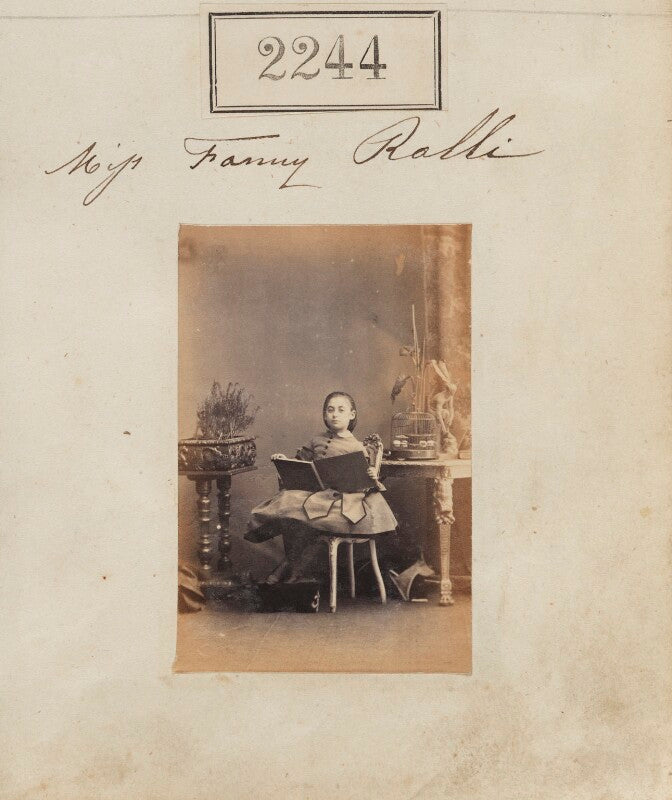 2244
Miss Fanny Ralli